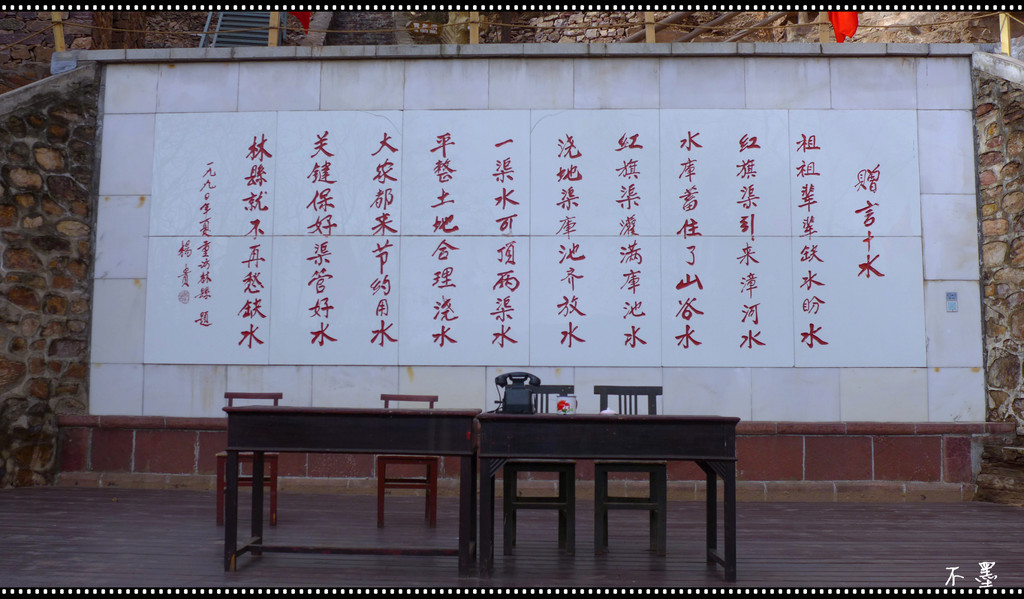 赠言十水
祖祖辈辈缺水盼水
红旗渠引来漳河水
水库蓄住了山谷水
红旗渠灌满库池水
浇地渠库池齐放水
一渠水可顶两渠水
平整土地合理浇水
大农都来节约用水
关键保好渠管好水
林县就不再愁缺水
一九九〇年夏重访林县题
杨贵
不墨